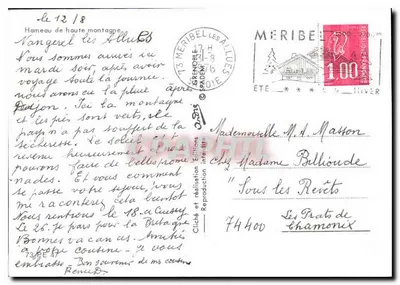 le 12/8
Hameau de haute montagne
Vangerel les Allues
Nous sommes arrivés ici
mardi soir, après avoir
voyagé toute la journée.
nous avons eu la pluie après
Dijon. Ici la montagne
et les prés sont verts, le
pays n'a pas souffert de la
sécheresse. Le soleil est
revenu heureusement, nous
pouvons faire de belles prome
nades. Et vous comment
se passe votre séjour, vous
me raconterez cela bientôt
Nous rentrons le 18 à Cussy
Le 26 je pars pour la Bretagne
Bonnes vacances. Amitiés
Votre cousine. Je vous
embrasse. Bon souvenir de ma cousine
Renée
Cliché et réalisation Editions
Reproduction interdite
GRENOBLE
73 MERIBEL LES ALLUES
SAVOIE
MERIBEL
ETE
HIVER
1.00
Mademoiselle M. A. Masson
Chez Madame Billioude
"Sous les Revêts"
Les Prats de
74400 Chamonix